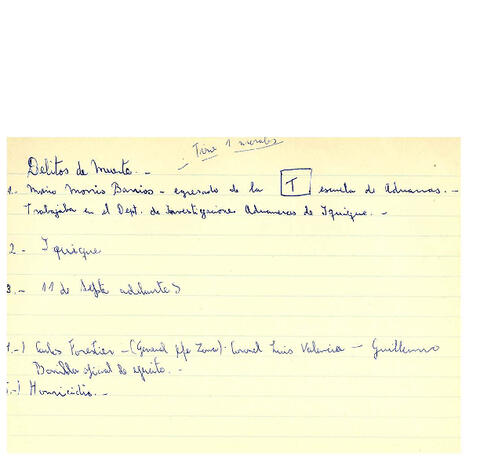 Tiene 1
Delitos de Muerte. -
1. Mario Morris Barrios - egresado de la T escuela de Aduanas. -
Trabajaba en el Dept. de Investigaciones Aduaneras de Iquique. -
2 - Iquique
3. - 11 de Septe adelante
4.-) Carlos Forestier - (General Jefe Zona). Coronel Luis Valencia - Guillermo
Bonilla oficial de ejército. -
5.-) Homicidio. -